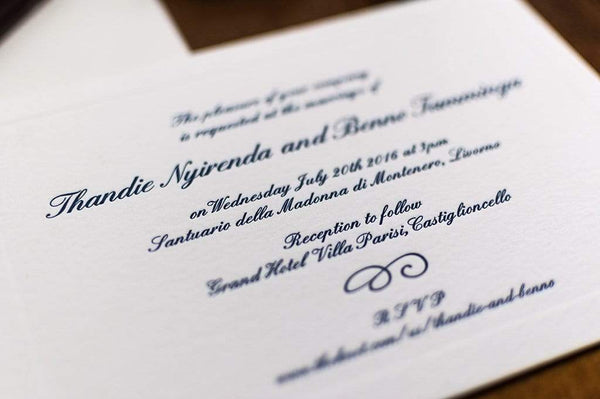 The pleasure of your company
is requested at the marriage of
Thandie Nyirenda and Benno
on Wednesday July 20th 2016 at 3pm
Santuario della Madonna di Montenero, Livorno
Reception to follow
Grand Hotel Villa Parisi, Castiglioncello
R S V P
/thandie-and-benno